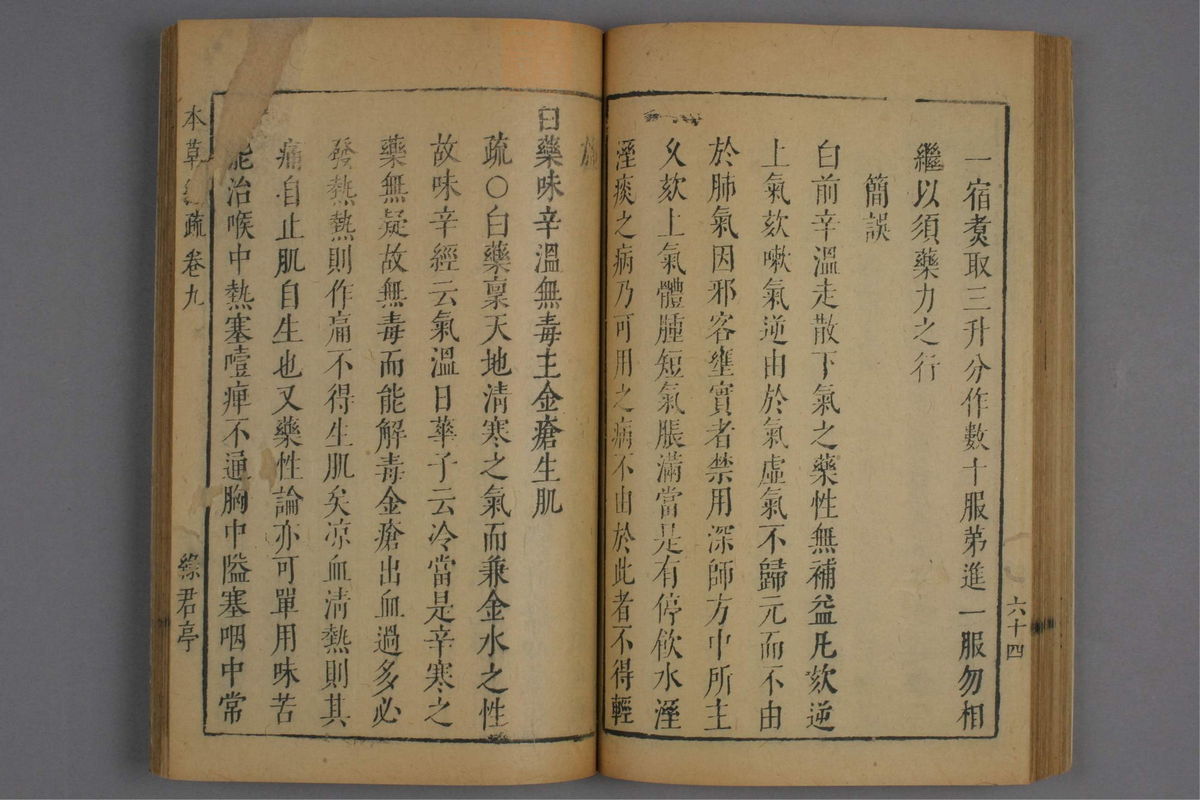 一宿煑取三升分作數十服弟進一服勿相
繼以須藥力之行
簡誤
白前辛溫走散下氣之藥性無補益凡欬逆
上氣欬嗽氣逆由於氣虛氣不歸元而不由
於肺氣因邪客壅實者禁用深師方中所主
久欬上氣體腫短氣脹滿當是有停飲水溼
溼痰之病乃可用之病不由於此者不得輕
六十四
施
白藥味辛溫無毒主金瘡生肌
疏○白藥稟天地清寒之氣而兼金水之性
故味辛經云氣溫日華子云冷當是辛寒之
藥無疑故無毒而能解毒金瘡出血過多必
發熱熱則作痛不得生肌矣凉血清熱則其
痛自止肌自生也又藥性論亦可單用味苦
能治喉中熱塞噎痺不通胸中隘塞咽中常
本草經疏 卷九 綠君亭